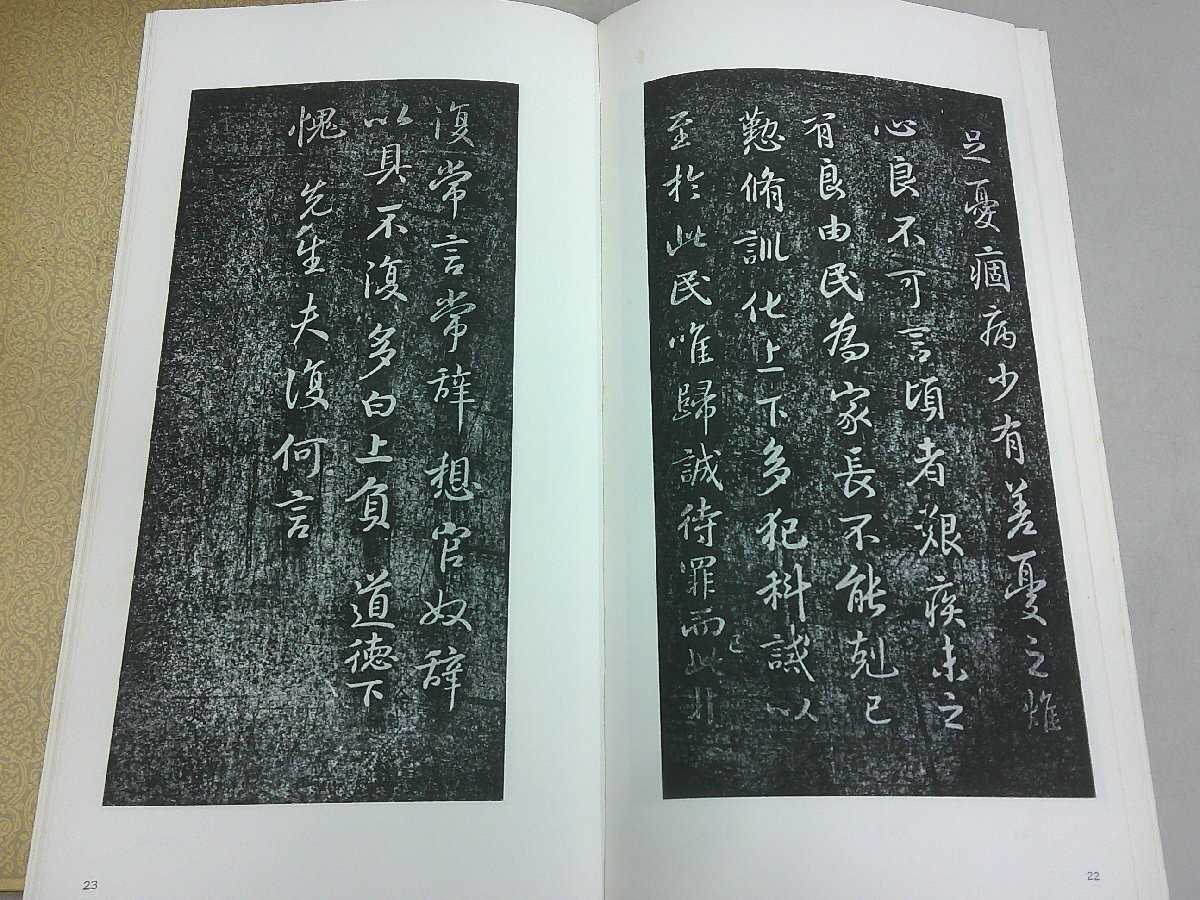 足憂痼病少有差憂之燋
心良不可言頃者艱疾未之
有良由民為家長不能剋己
懃脩訓化上下多犯科誡以
至於此民唯歸誠待罪而已此非
22
復常言常辭想官奴辭
以具不復多白上負 道德下
愧 先生夫復何言
23